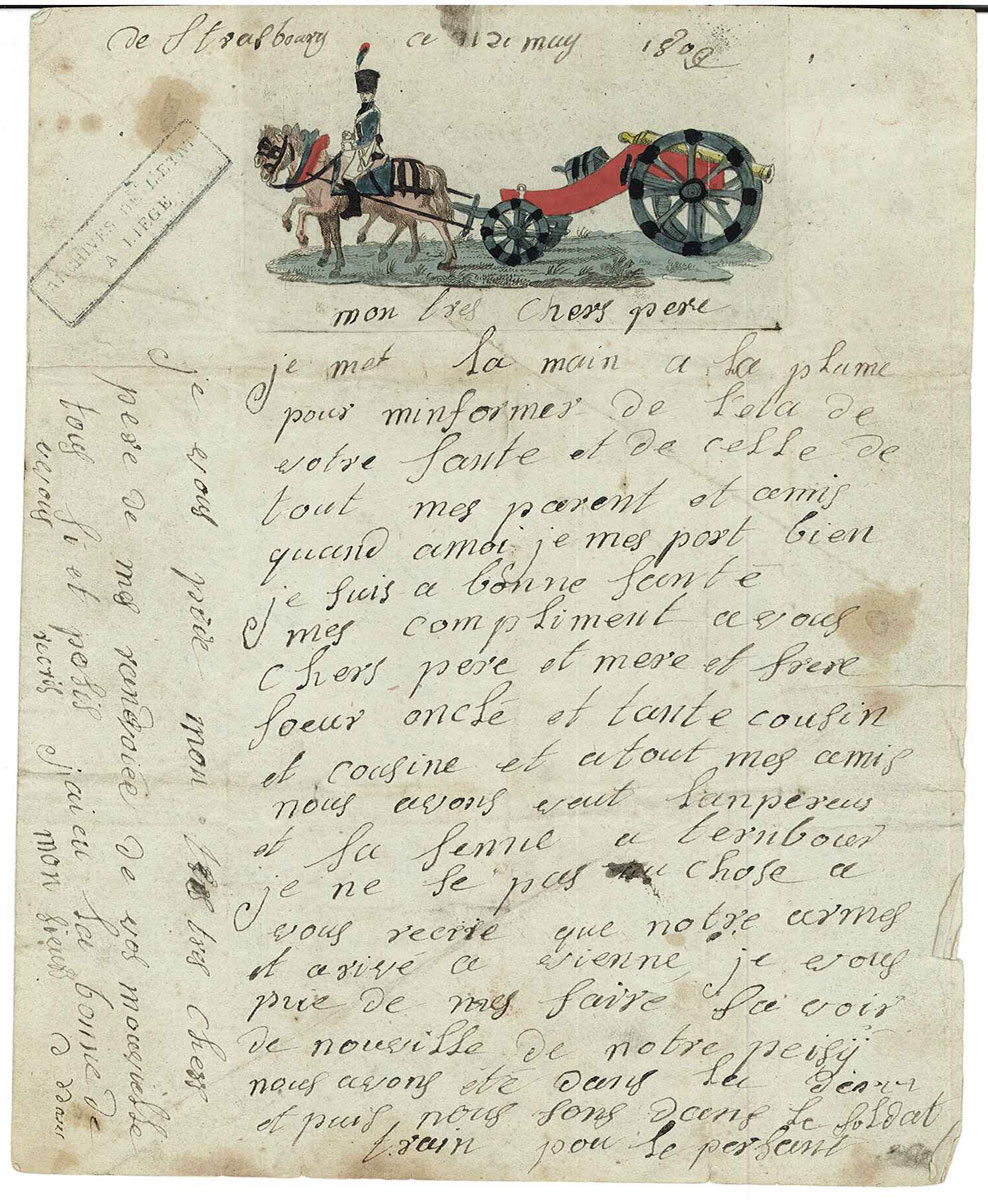 de Strasbourg a 12 may 1809
ARCHIVES DE L'ETAT
A LIEGE
mon tres chers pere
je met la main a la plume
pour minformer de l'eta de
votre sante et de celle de
tout mes parent et amis
quand amoi je mes port bien
je suis a bonne santé
mes compliment a vous
chers pere et mere et frere
soeur oncle et tante cousin
et cousine et atout mes amis
nous avons vaut lanpereur
et sa femme a
je ne se pas chose a
vous recrire que notre armes
et arivé a vienne je vous
prie de mes faire savoir
de nouvelle de notre peisÿ
nous avons été dans la
et puis nous sons dans le soldat
train pou le persant
je vous prie mon tres chers
pere de mes randvoiée de vos nouvuelle
tous si et posis j'aieu la bonne de
vous recris mon